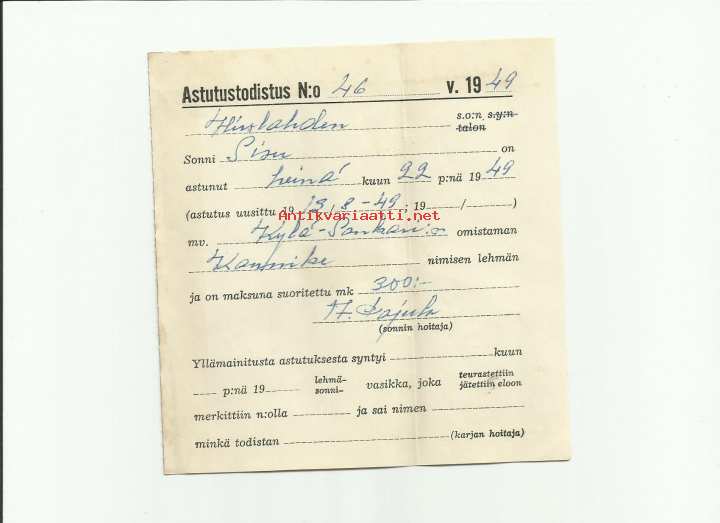 Astutustodistus N:o 46 v. 1949
Hirslahden s.o:n s.y:n talon
Sonni Sisu on
astunut heinä kuun 22 p:nä 1949
(astutus uusittu 19 13/8-49; 19 / )
Antikvariaatti.net
mv. Kylä- omistaman
nimisen lehmän
ja on maksuna suoritettu mk 300:-
(sonnin hoitaja)
Yllämainitusta astutuksesta syntyi kuun
p:nä 19 lehmä- sonni- vasikka, joka teurastettiin jätettiin eloon
merkittiin n:olla ja sai nimen
minkä todistan (karjan hoitaja)